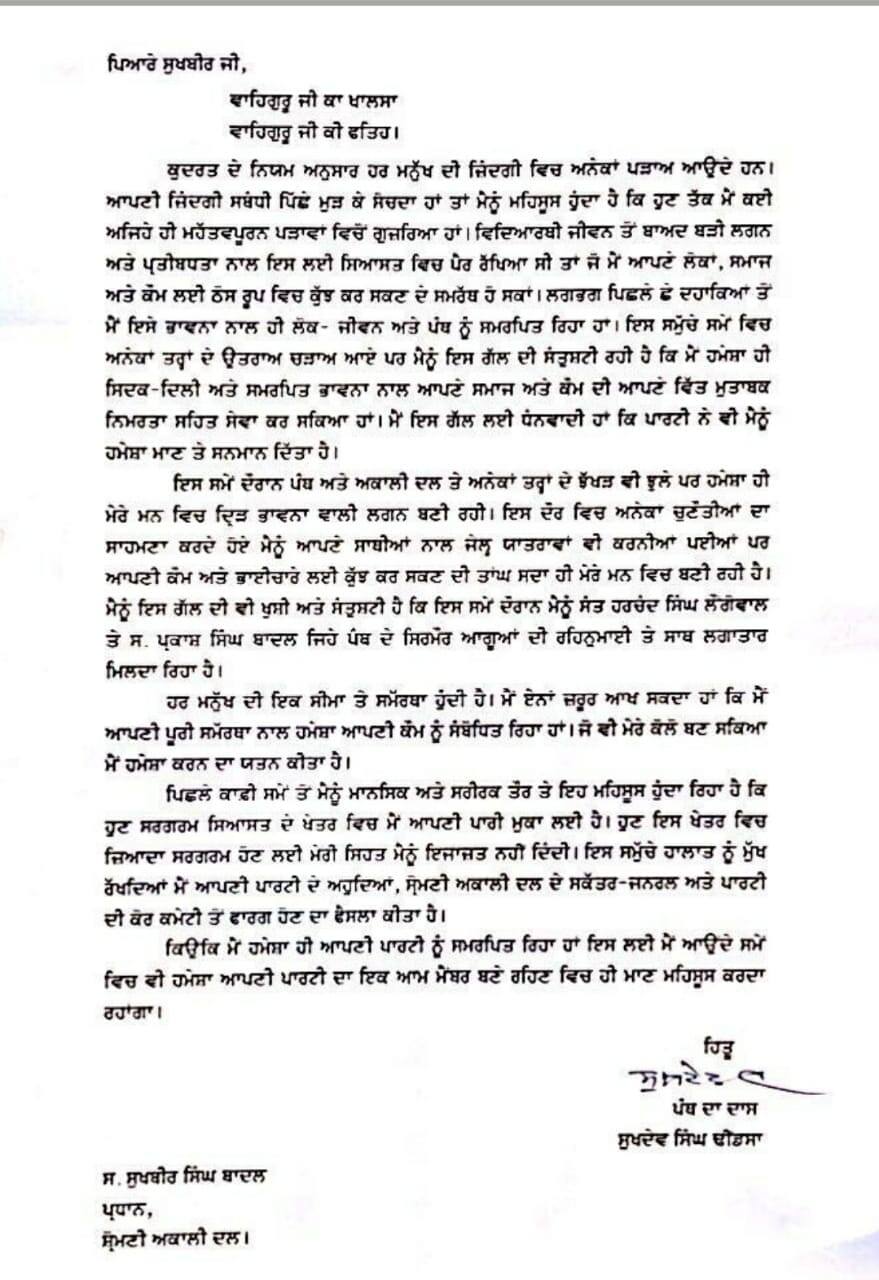 ਪਿਆਰੇ ਸੁਖਬੀਰ ਜੀ,
ਵਾਹਿਗੁਰੂ ਜੀ ਕਾ ਖਾਲਸਾ
ਵਾਹਿਗੁਰੂ ਜੀ ਕੀ ਫਤਿਹ।
ਕੁਦਰਤ ਦੇ ਨਿਯਮ ਅਨੁਸਾਰ ਹਰ ਮਨੁੱਖ ਦੀ ਜ਼ਿੰਦਗੀ ਵਿਚ ਅਨੇਕਾਂ ਪੜਾਅ ਆਉਂਦੇ ਹਨ।
ਆਪਣੀ ਜ਼ਿੰਦਗੀ ਸਬੰਧੀ ਪਿੱਛੇ ਮੁੜ ਕੇ ਸੋਚਦਾ ਹਾਂ ਤਾਂ ਮੈਨੂੰ ਮਹਿਸੂਸ ਹੁੰਦਾ ਹੈ ਕਿ ਹੁਣ ਤੱਕ ਮੈਂ ਕਈ
ਅਜਿਹੇ ਹੀ ਮਹੱਤਵਪੂਰਨ ਪੜਾਵਾਂ ਵਿਚੋਂ ਗੁਜ਼ਰਿਆ ਹਾਂ। ਵਿਦਿਆਰਥੀ ਜੀਵਨ ਤੋਂ ਬਾਅਦ ਬੜੀ ਲਗਨ
ਅਤੇ ਪ੍ਰਤੀਬਧਤਾ ਨਾਲ ਇਸ ਲਈ ਸਿਆਸਤ ਵਿਚ ਪੈਰ ਰੱਖਿਆ ਸੀ ਤਾਂ ਜੋ ਮੈਂ ਆਪਣੇ ਲੋਕਾਂ, ਸਮਾਜ
ਅਤੇ ਕੌਮ ਲਈ ਠੋਸ ਰੂਪ ਵਿਚ ਕੁੱਝ ਕਰ ਸਕਣ ਦੇ ਸਮਰੱਥ ਹੋ ਸਕਾਂ। ਲਗਭਗ ਪਿਛਲੇ ਛੇ ਦਹਾਕਿਆਂ ਤੋਂ
ਮੈਂ ਇਸੇ ਭਾਵਨਾ ਨਾਲ ਹੀ ਲੋਕ- ਜੀਵਨ ਅਤੇ ਪੰਥ ਨੂੰ ਸਮਰਪਿਤ ਰਿਹਾ ਹਾਂ। ਇਸ ਸਮੁੱਚੇ ਸਮੇਂ ਵਿਚ
ਅਨੇਕਾਂ ਤਰ੍ਹਾਂ ਦੇ ਉਤਰਾਅ ਚੜਾਅ ਆਏ ਪਰ ਮੈਨੂੰ ਇਸ ਗੱਲ ਦੀ ਸੰਤੁਸ਼ਟੀ ਰਹੀ ਹੈ ਕਿ ਮੈਂ ਹਮੇਸ਼ਾ ਹੀ
ਸਿਦਕ-ਦਿਲੀ ਅਤੇ ਸਮਰਪਿਤ ਭਾਵਨਾ ਨਾਲ ਆਪਣੇ ਸਮਾਜ ਅਤੇ ਕੌਮ ਦੀ ਆਪਣੇ ਵਿੱਤ ਮੁਤਾਬਕ
ਨਿਮਰਤਾ ਸਹਿਤ ਸੇਵਾ ਕਰ ਸਕਿਆ ਹਾਂ। ਮੈਂ ਇਸ ਗੱਲ ਲਈ ਧੰਨਵਾਦੀ ਹਾਂ ਕਿ ਪਾਰਟੀ ਨੇ ਵੀ ਮੈਨੂੰ
ਹਮੇਸ਼ਾ ਮਾਣ ਤੇ ਸਨਮਾਨ ਦਿੱਤਾ ਹੈ।
ਇਸ ਸਮੇਂ ਦੌਰਾਨ ਪੰਥ ਅਤੇ ਅਕਾਲੀ ਦਲ ਤੇ ਅਨੇਕਾਂ ਤਰ੍ਹਾਂ ਦੇ ਝੱਖੜ ਵੀ ਝੁਲੇ ਪਰ ਹਮੇਸ਼ਾ ਹੀ
ਮੇਰੇ ਮਨ ਵਿਚ ਦ੍ਰਿੜ ਭਾਵਨਾ ਵਾਲੀ ਲਗਨ ਬਣੀ ਰਹੀ। ਇਸ ਦੌਰ ਵਿਚ ਅਨੇਕਾਂ ਚੁਣੌਤੀਆਂ ਦਾ
ਸਾਹਮਣਾ ਕਰਦੇ ਹੋਏ ਮੈਨੂੰ ਆਪਣੇ ਸਾਥੀਆਂ ਨਾਲ ਜੇਲ੍ਹ ਯਾਤਰਾਵਾਂ ਵੀ ਕਰਨੀਆਂ ਪਈਆਂ ਪਰ
ਆਪਣੀ ਕੌਮ ਅਤੇ ਭਾਈਚਾਰੇ ਲਈ ਕੁੱਝ ਕਰ ਸਕਣ ਦੀ ਤਾਂਘ ਸਦਾ ਹੀ ਮੇਰੇ ਮਨ ਵਿਚ ਬਣੀ ਰਹੀ ਹੈ।
ਮੈਨੂੰ ਇਸ ਗੱਲ ਦੀ ਵੀ ਖੁਸ਼ੀ ਅਤੇ ਸੰਤੁਸ਼ਟੀ ਹੈ ਕਿ ਇਸ ਸਮੇਂ ਦੌਰਾਨ ਮੈਨੂੰ ਸੰਤ ਹਰਚੰਦ ਸਿੰਘ ਲੌਂਗੋਵਾਲ
ਤੇ ਸ. ਪ੍ਰਕਾਸ਼ ਸਿੰਘ ਬਾਦਲ ਜਿਹੇ ਪੰਥ ਦੇ ਸਿਰਮੌਰ ਆਗੂਆਂ ਦੀ ਰਹਿਨੁਮਾਈ ਤੇ ਸਾਥ ਲਗਾਤਾਰ
ਮਿਲਦਾ ਰਿਹਾ ਹੈ।
ਹਰ ਮਨੁੱਖ ਦੀ ਇਕ ਸੀਮਾ ਤੇ ਸਮੱਰਥਾ ਹੁੰਦੀ ਹੈ। ਮੈਂ ਏਨਾਂ ਜ਼ਰੂਰ ਆਖ ਸਕਦਾ ਹਾਂ ਕਿ ਮੈਂ
ਆਪਣੀ ਪੂਰੀ ਸਮੱਰਥਾ ਨਾਲ ਹਮੇਸ਼ਾ ਆਪਣੀ ਕੌਮ ਨੂੰ ਸੰਬੋਧਿਤ ਰਿਹਾ ਹਾਂ। ਜੋ ਵੀ ਮੇਰੇ ਕੋਲੋਂ ਬਣ ਸਕਿਆ
ਮੈਂ ਹਮੇਸ਼ਾ ਕਰਨ ਦਾ ਯਤਨ ਕੀਤਾ ਹੈ।
ਪਿਛਲੇ ਕਾਫ਼ੀ ਸਮੇਂ ਤੋਂ ਮੈਨੂੰ ਮਾਨਸਿਕ ਅਤੇ ਸਰੀਰਕ ਤੌਰ ਤੇ ਇਹ ਮਹਿਸੂਸ ਹੁੰਦਾ ਰਿਹਾ ਹੈ ਕਿ
ਹੁਣ ਸਰਗਰਮ ਸਿਆਸਤ ਦੇ ਖੇਤਰ ਵਿਚ ਮੈਂ ਆਪਣੀ ਪਾਰੀ ਮੁਕਾ ਲਈ ਹੈ। ਹੁਣ ਇਸ ਖੇਤਰ ਵਿਚ
ਜ਼ਿਆਦਾ ਸਰਗਰਮ ਹੋਣ ਲਈ ਮੇਰੀ ਸਿਹਤ ਮੈਨੂੰ ਇਜਾਜ਼ਤ ਨਹੀਂ ਦਿੰਦੀ। ਇਸ ਸਮੁੱਚੇ ਹਾਲਾਤ ਨੂੰ ਮੁੱਖ
ਰੱਖਦਿਆਂ ਮੈਂ ਆਪਣੀ ਪਾਰਟੀ ਦੇ ਅਹੁਦਿਆਂ, ਸ਼੍ਰੋਮਣੀ ਅਕਾਲੀ ਦਲ ਦੇ ਸਕੱਤਰ-ਜਨਰਲ ਅਤੇ ਪਾਰਟੀ
ਦੀ ਕੋਰ ਕਮੇਟੀ ਤੋਂ ਫਾਰਗ ਹੋਣ ਦਾ ਫੈਸਲਾ ਕੀਤਾ ਹੈ।
ਕਿਉਂਕਿ ਮੈਂ ਹਮੇਸ਼ਾ ਹੀ ਆਪਣੀ ਪਾਰਟੀ ਨੂੰ ਸਮਰਪਿਤ ਰਿਹਾ ਹਾਂ ਇਸ ਲਈ ਮੈਂ ਆਉਂਦੇ ਸਮੇਂ
ਵਿਚ ਵੀ ਹਮੇਸ਼ਾ ਆਪਣੀ ਪਾਰਟੀ ਦਾ ਇਕ ਆਮ ਮੈਂਬਰ ਬਣੇ ਰਹਿਣ ਵਿਚ ਹੀ ਮਾਣ ਮਹਿਸੂਸ ਕਰਦਾ
ਰਹਾਂਗਾ।
ਹਿਤੂ
ਸੁਖਦੇਵ
ਪੰਥ ਦਾ ਦਾਸ
ਸੁਖਦੇਵ ਸਿੰਘ ਢੀਂਡਸਾ
ਸ. ਸੁਖਬੀਰ ਸਿੰਘ ਬਾਦਲ
ਪ੍ਰਧਾਨ,
ਸ਼੍ਰੋਮਣੀ ਅਕਾਲੀ ਦਲ।